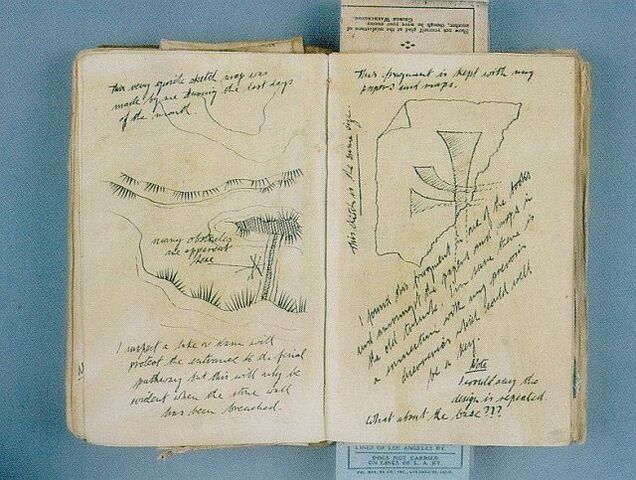 Show not yourself glad at the misfortune of
another, though he were your enemy.
GEORGE WASHINGTON.
This very quick sketch map was
made by me during the last days
of the month.
many obstacles
are apparent
here
I suspect a lake or dam will
protect the entrance to the final
pathway but this will only be
evident when the stone wall
has been breached.
N
This fragment is kept with my
papers and maps.
This sketch is the same size.
I found this fragment in one of the
and amongst the papers and maps in
the old I'm sure there is
a connection with my previous
discoveries which could well
be a key.
Note
I would say the
design is repeated.
What about the base???
LINES OF LOS ANGELES RY.
DOES NOT CARRIED
ON LINES OF L. A. RY.